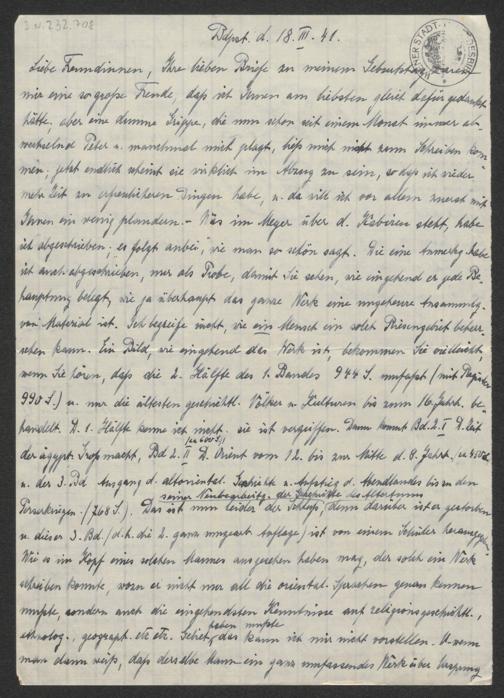 J.N. 232.708
Bdpst. d. 18. III. 41.
Liebe Freundinnen, Ihre lieben Briefe zu meinem Geburtstag waren
mir eine so große Freude, daß ich Ihnen am liebsten gleich dafür gedankt
hätte, aber eine dumme Grippe, die nun schon seit einem Monat immer ab-
wechselnd Peter u. manchmal mich plagt, ließ mich nicht zum Schreiben kom-
men; jetzt endlich scheint sie wirklich im Abzug zu sein, so daß ich wieder
mehr Zeit zu erfreulicheren Dingen habe, u. da will ich vor allem zuerst mit
Ihnen ein wenig plaudern. – Was im Meyer über d. Kabiren steht, habe
ich abgeschrieben; es folgt anbei, wie man so schön sagt. Die eine Anmerkg. habe
ich auch abgeschrieben, nur als Probe, damit Sie sehen, wie eingehend er jede Be-
hauptung belegt, wie ja überhaupt das ganze Werk eine ungeheure Ansammlg.
von Material ist. Ich begreife nicht, wie ein Mensch ein solch Riesengebiet beherr-
schen kann. Ein Bild, wie eingehend das Werk ist, bekommen Sie vielleicht,
wenn Sie hören, daß die 2. Hälfte des 1. Bandes 944 S. umfasst (mit Register
990 S.) u. nur die ältesten geschichtl. Völker u. Kulturen bis zum 16. Jahrh. be-
handelt. D. 1. Hälfte kenne ich nicht, sie ist vergriffen. Dann kommt Bd. 2. I D. Zeit
der ägypt. Großmacht, (u. 600 S.) Bd 2. II D. Orient vom 12. bis zur Mitte d. 8. Jahrh.
u. der 3. Bd Ausgang d. altoriental. Geschichte u. Aufstieg d. Abendlandes bis zu den
Perserkriegen. (768 S.). Das ist nun leider der Schluß seiner Neubearbeitg. der Geschichte des Altertums, denn darüber ist er gestorben
u. dieser 3. Bd. (d. h. die 2. ganz umgearb. Auflage) ist von einem Schüler herausgegeb.
Wie es im Kopf eines solchen Mannes ausgesehen haben mag, der solch ein Werk
schreiben konnte, wozu er nicht nur all die oriental. Sprachen genau kennen
mußte, sondern auch die eingehendsten Kenntnisse auf religionsgeschichtl.,
ethnolog., geograph. etc etc. Gebiet haben mußte, das kann ich mir nicht vorstellen. U. wenn
man dann weiß, daß derselbe Mann ein ganz umfassendes Werk über Ursprung